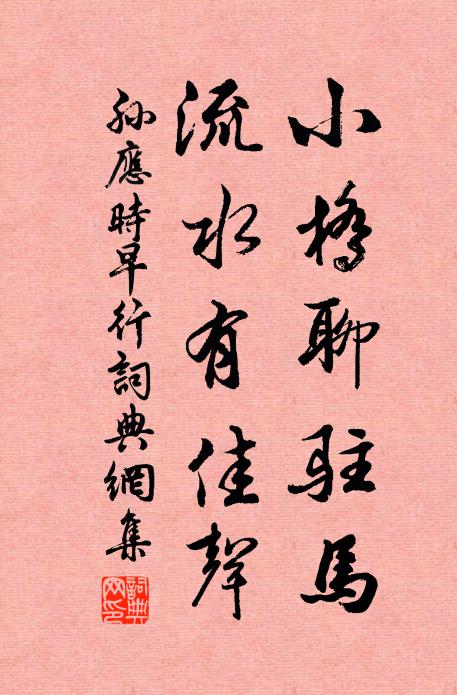 小橋聊駐馬
流水有佳聲
孫應時早行詞典網集
詞典網印